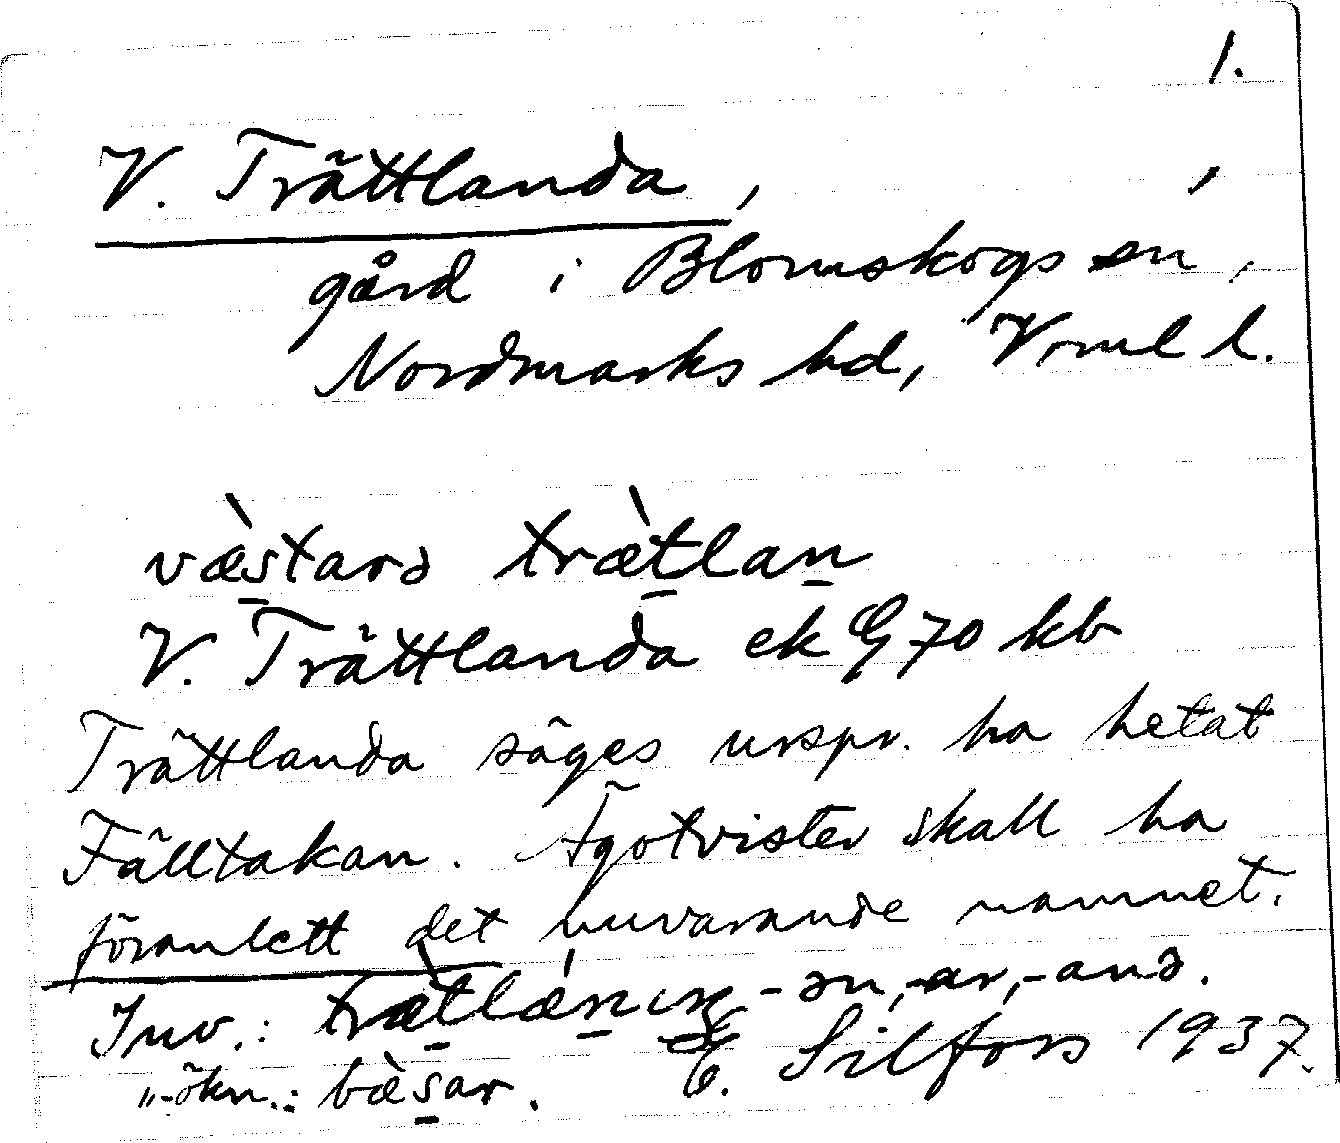 1.
V. Trättlanda,
gård i Blomskogs sn,
Nordmarks hd, Vrml l.
væ̀s̠tarə træ̀t̠lan̠
V. Trättlanda ek G 70 kb
Trättlanda säges urspr. ha hetat
Fälltakan. Ägotvister skall ha
föranlett det nuvarande namnet.
Inv.: træ̀t̠læ̀n̠ıŋ -ən, -ar, -anə.
„-ökn.: bæ̀s̠ar. E. Silfors 1937.